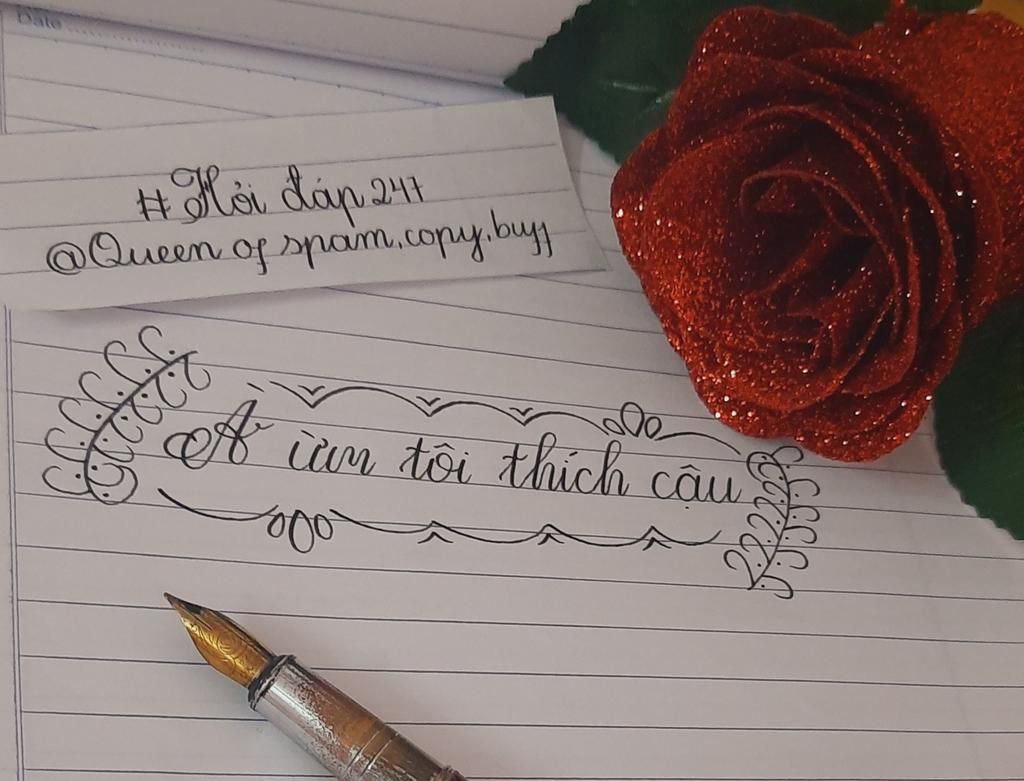 Date
#Hỏi đáp 247
@Queen of spam.copy.buff
A ừm tôi thích cậu